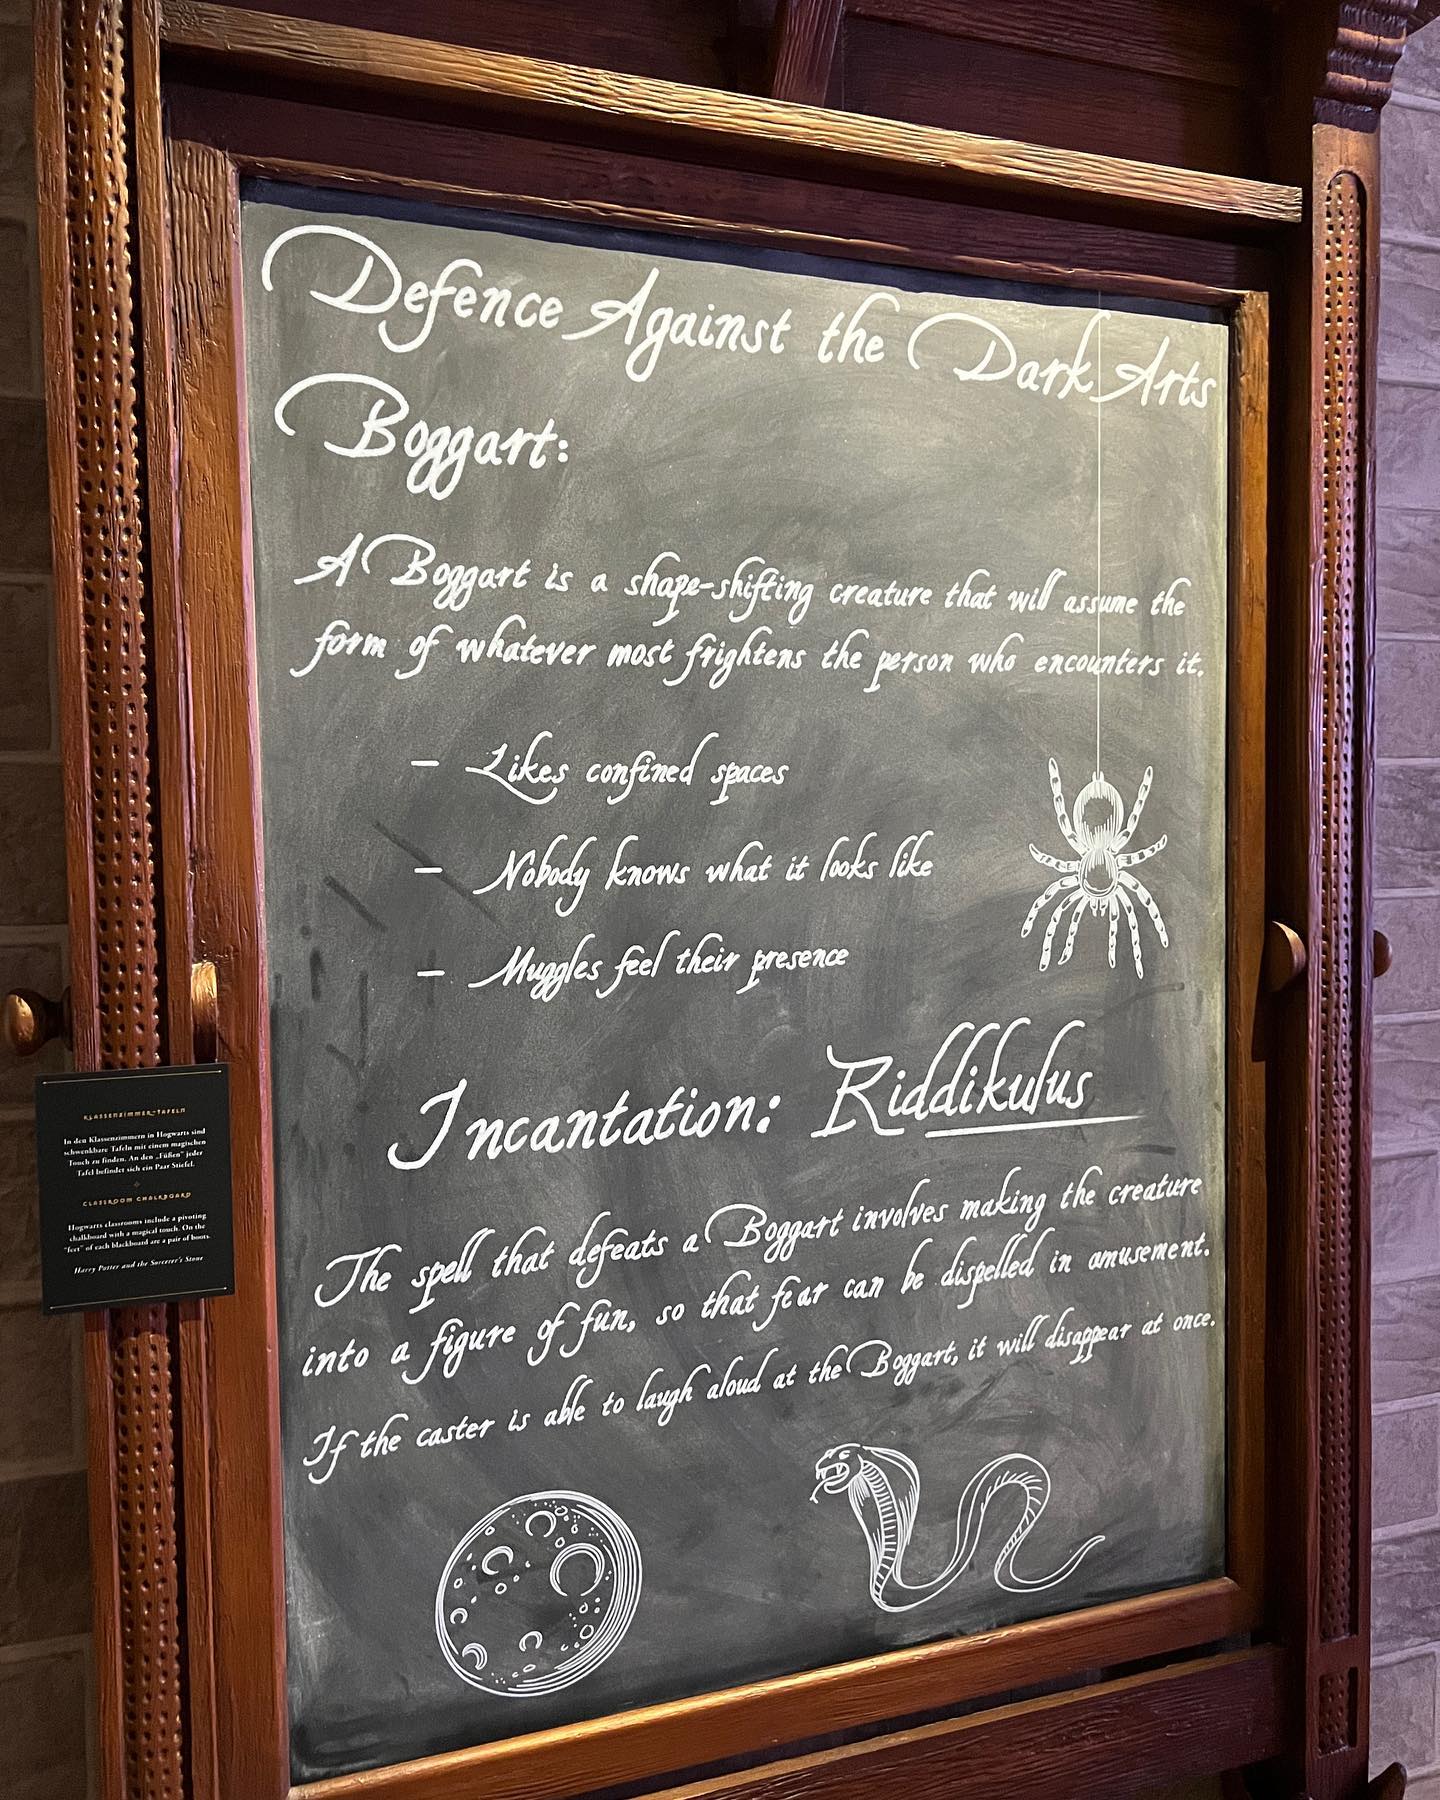 Defence Against the Dark Arts
Boggart:
A Boggart is a shape-shifting creature that will assume the
form of whatever most frightens the person who encounters it.
– Likes confined spaces
– Nobody knows what it looks like
– Muggles feel their presence
Incantation: Riddikulus
The spell that defeats a Boggart involves making the creature
into a figure of fun, so that fear can be dispelled in amusement.
If the caster is able to laugh aloud at the Boggart, it will disappear at once.
KLASSENZIMMER-TAFELN
In den Klassenzimmern in Hogwarts sind
schwenkbare Tafeln mit einem magischen
Touch zu finden. An den „Füßen“ jeder
Tafel befindet sich ein Paar Stiefel.
CLASSROOM CHALKBOARD
Hogwarts classrooms include a pivoting
chalkboard with a magical touch. On the
"feet" of each blackboard are a pair of boots.
Harry Potter and the Sorcerer's Stone